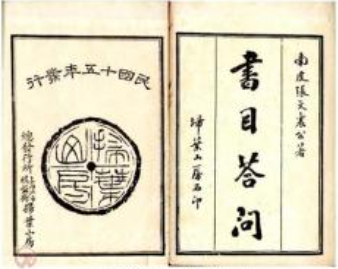 南皮張文襄公著
書目答問
掃葉山房石印
民國十五年發行
掃葉山房
總發行所
掃葉山房